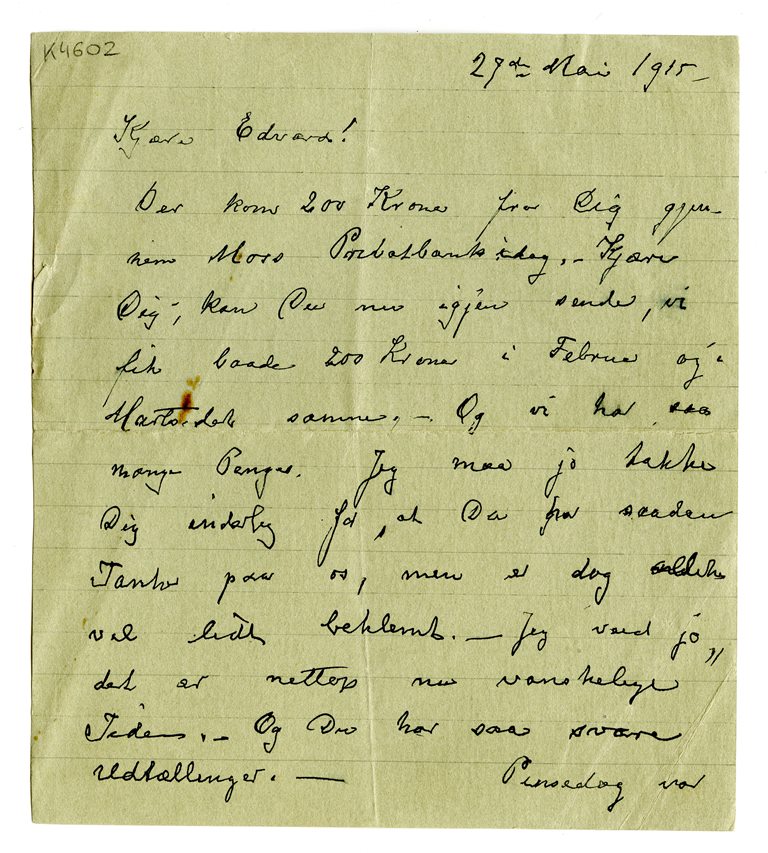 K4602
27de Mai 1915 –
Kjære Edvard!
Der kom 200 Krone fra Dig gjen-
nem Mors Privatbank idag. – Kjære
Dig, kan Du nu igjen sende, vi
fik baade 200 Krone i Februa og i
Marts det samme. – Og vi har saa
mange Penge. Jeg maa jo takke
Dig inderlig for, at Du har saadan
Tanke paa os, men er dog
vel lidt beklemt. – Jeg veed jo,
det er nettop nu vanskelige
Tider. – Og Du har saa svære
Udtællinger. — Pinsedag var